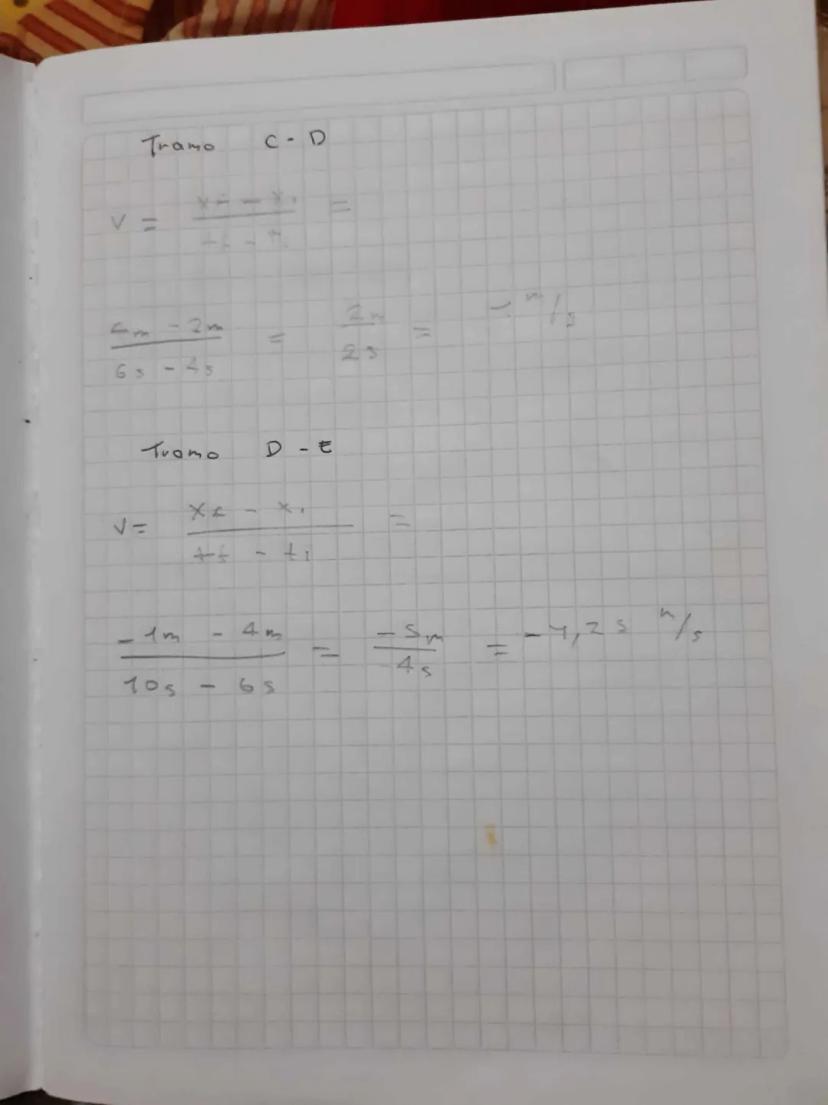 Tramo C - D
V = xf - xi / tf - ti =
4m - 2m / 6s - 4s = 2m / 2s = m/s
Tramo D - E
V = xf - xi / tf - ti =
-1m - 4m / 10s - 6s = -5m / 4s = -1,25 m/s